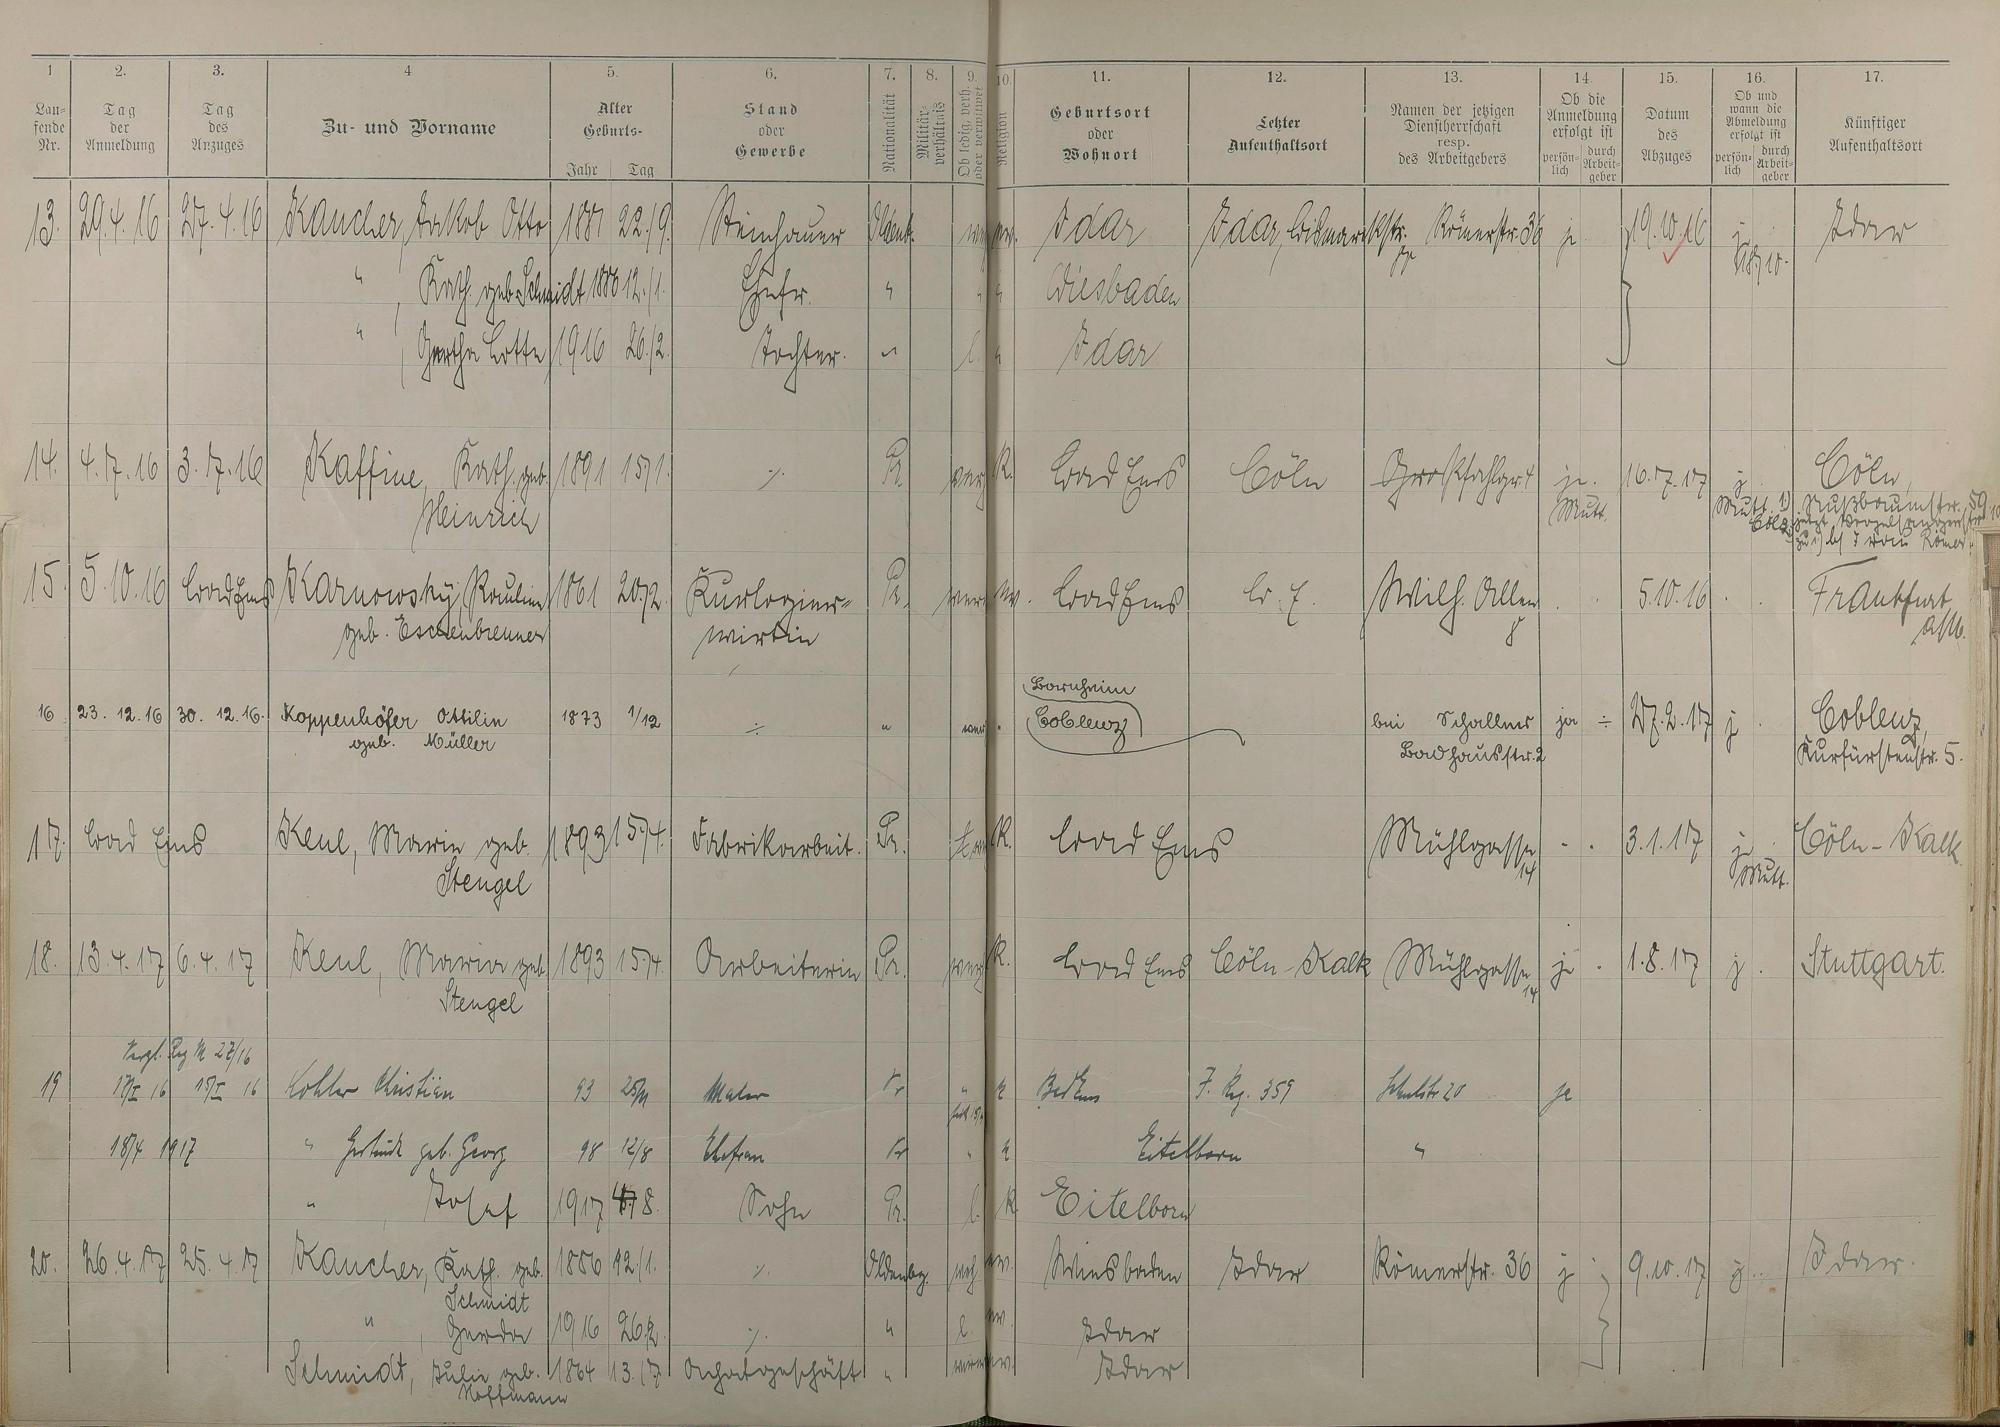 1 2. 3. 4 5. 6. 7. 8. 9. 10. 11. 12. 13. 14. 15. 16. 17.
Laufende Nr.
Tag der Anmeldung
Tag des Anzuges
Zu- und Vorname
Alter
Geburts-
Jahr Tag
Stand oder Gewerbe
Nationalität
Militärverhältnis
Ob ledig, verh. oder verwitwet
Religion
Geburtsort oder Wohnort
Letzter Aufenthaltsort
Namen der jetzigen Dienstherrschaft resp. des Arbeitgebers
Ob die Anmeldung erfolgt ist
persönlich durch Arbeitgeber
Datum des Abzuges
Ob und wann die Abmeldung erfolgt ist
persönlich durch Arbeitgeber
Künftiger Aufenthaltsort
13. 29.4.16 27.4.16 Kaucher, Jakob Otto 1881 22./9. Steinhauer Oldenb. ev. Idar Idar, Bismarckstr. Römerstr. 36 ja 19.10.16 j Idar
18/10.
" , Kath. geb. Schmidt 1886 12./1. Ehefr. " " " Wiesbaden
" , Gertha Lotte 1916 26./2. Tochter. " l. " Idar
14. 4.7.16 3.7.16 Kaffine, Kath. geb. 1891 15/1. ./. Pr. verh K. Bad Ems Cöln ja. 16.7.17 j Cöln,
Heinrich Mutt. Mutt. 1) Nußbaumstr. 59
15. 5.10.16 Bad Ems Karnowsky, Pauline 1861 20/2. Kurlogier- Pr. ev. Bad Ems B. E. Wilh. Allee 5.10.16 Frankfurt
geb. Eschenbrenner wirtin 8 a/M.
Bornheim
16 23. 12.16 30. 12.16. Koppenhöfer Ottilie 1873 1/12 ÷ " Coblenz bei Schallner ja ÷ 27.2.17 j Coblenz,
geb. Müller Badhausstr. 2 Kurfürstenstr. 5.
17. Bad Ems Keul, Maria geb. 1893 15/4. Fabrikarbeit. Pr. K. Bad Ems Mühlgasse - . 3.1.17 j Cöln-Kalk
Stengel 14 Mutt.
18. 13.4.17 6.4.17 Keul, Maria geb. 1893 15/4. Arbeiterin Pr. verh K. Bad Ems Cöln-Kalk Mühlgasse ja . 1.8.17 j . Stuttgart.
Stengel 14
Vergl. Reg M 27/16
19 16 16 Kohler Christian 93 Maler Pr " K Bad Ems F. Reg. 359 Schulstr 20 ja
18/4 1917 " Gertrude geb. Georg 98 12/8 Ehefrau Pr " K Eitelborn "
" , Josef 1917 Sohn Pr. l. K Eitelborn
20. 26.4.17 25.4.17 Kaucher, Kath. geb. 1886 12./1. ./. Oldenbg. verh ev. Wiesbaden Idar Römerstr. 36 j 9.10.17 j Idar.
Schmidt
" , Gerda 1916 26/2. ./. " l. ev. Idar
Schmidt, Julie geb. 1864 13./7 Achatgeschäft " ev. Idar
Hoffmann